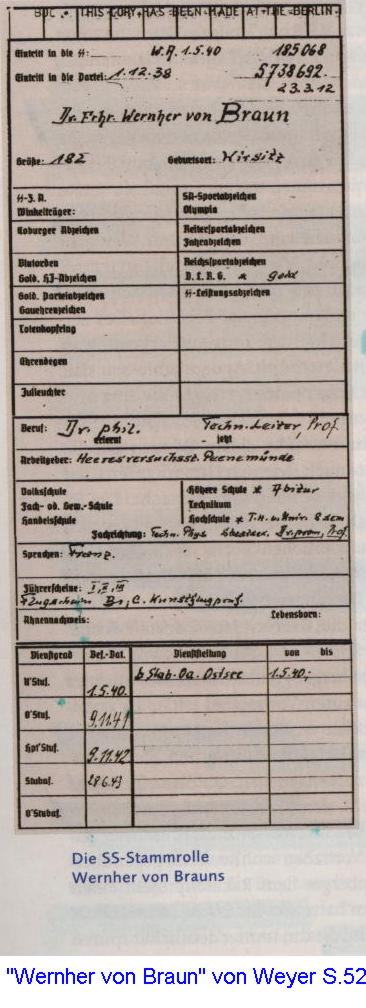 BDC. THIS COPY HAS BEEN MADE AT THE BERLIN.
Eintritt in die SS: W.A. 1.5.40 185068
Eintritt in die Partei: 1.12.38 5738692.
23.3.12
Dr. Frhr. Wernher von Braun
Größe: 182 Geburtsort: Wirsitz
SS-Z.A. SA-Sportabzeichen
Winkelträger: Olympia
Coburger Abzeichen Reitersportabzeichen
Fahrabzeichen
Blutorden Reichssportabzeichen
Gold. HJ-Abzeichen D.L.R.G. * gold
Gold. Parteiabzeichen SS-Leistungsabzeichen
Gauehrenzeichen
Totenkopfring
Ehrendegen
Julleuchter
Beruf: Dr. phil. Techn. Leiter, Prof.
erlernt jetzt
Arbeitgeber: Heeresversuchsst. Peenemünde
Volksschule Höhere Schule * Abitur
Fach- od. Gew.-Schule Technikum
Handelsschule Hochschule * T.H. u. Univ.
Fachrichtung: Techn. Phys. Prof.
Sprachen: Franz.
Führerscheine: I, II, III
Flugschein B1, C, Kunstflugprüf.
Ahnennachweis: Lebensborn:
Dienstgrad Bef.-Dat. Dienststellung von bis
U'Stuf. 1.5.40. b Stab Oa. Ostsee 1.5.40,-
O'Stuf. 9.11.41
Hpt'Stuf. 9.11.42
Stubaf. 28.6.43
O'Stubaf.
Die SS-Stammrolle
Wernher von Brauns
"Wernher von Braun" von Weyer S.52